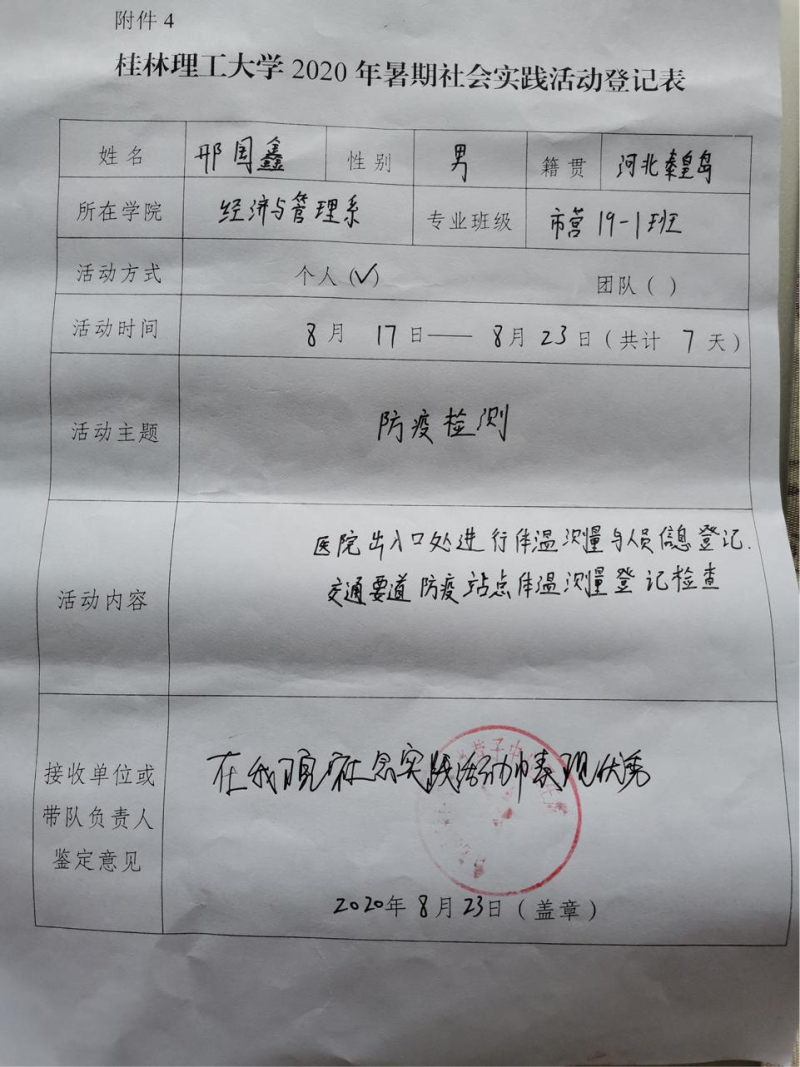 附件 4
桂林理工大学 2020 年暑期社会实践活动登记表
姓名 邢国鑫 性别 男 籍贯 河北秦皇岛
所在学院 经济与管理系 专业班级 市营 19-1班
活动方式 个人(✓) 团队( )
活动时间 8月 17日——8月23日(共计 7 天)
活动主题 防疫检测
医院出入口处进行体温测量与人员信息登记.
活动内容 交通要道防疫站点体温测量登记检查
接收单位或
带队负责人
鉴定意见
在我院社会实践活动中表现优秀
2020年 8月 23日(盖章)